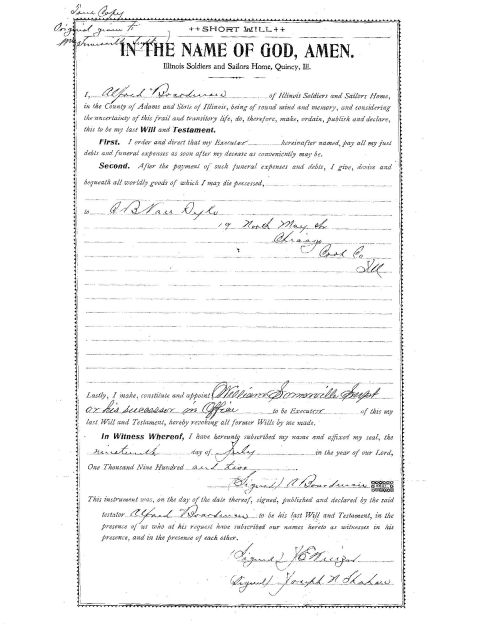 True Copy
Original given to
++SHORT WILL++
IN THE NAME OF GOD, AMEN.
Illinois Soldiers and Sailors Home, Quincy, Ill.
I, Alfred Boardman of Illinois Soldiers and Sailors Home,
in the County of Adams and State of Illinois, being of sound mind and memory, and considering
the uncertainty of this frail and transitory life, do, therefore, make, ordain, publish and declare,
this to be my last Will and Testament.
First. I order and direct that my Executor hereinafter named, pay all my just
debts and funeral expenses as soon after my decease as conveniently may be.
Second. After the payment of such funeral expenses and debts, I give, devise and
bequeath all worldly goods of which I may die possessed,
to C B Van
19 North May St
Chicago
Cook Co
Ill
Lastly, I make, constitute and appoint William Somerville Supt
or his successor in Office to be Executor of this my
last Will and Testament, hereby revoking all former Wills by me made.
In Witness Whereof, I have hereunto subscribed my name and affixed my seal, the
nineteenth day of July in the year of our Lord,
One Thousand Nine Hundred and two
(Signed) A Boardman
This instrument was, on the day of the date thereof, signed, published and declared by the said
testator Alfred Boardman to be his last Will and Testament, in the
presence of us who at his request have subscribed our names hereto as witnesses in his
presence, and in the presence of each other.
(Signed)
(Signed) Joseph